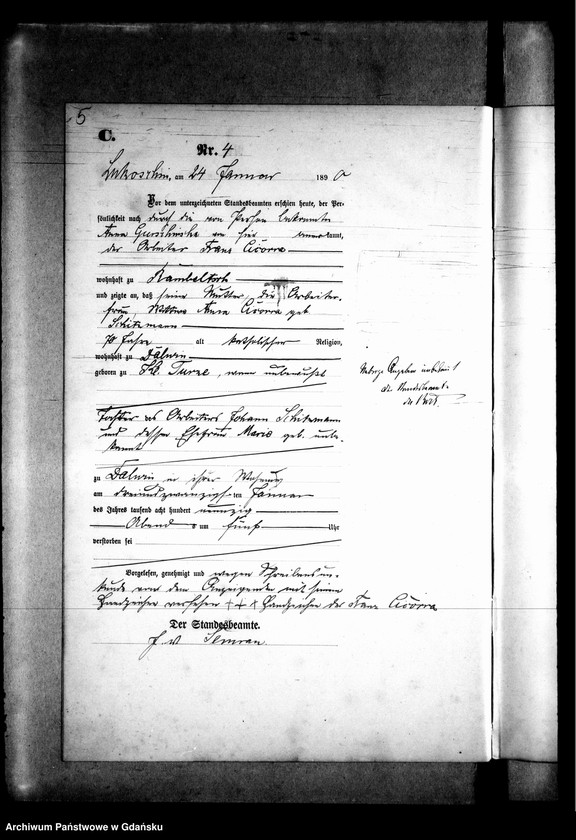 5
C.
Nr. 4
Lukoschin, am 24 Januar 1890
Vor dem unterzeichneten Standesbeamten erschien heute, der Per-
sönlichkeit nach durch die von Person bekannte
Anna kannt,
der Arbeiter Franz Cićorra
wohnhaft zu Rambeltsch
und zeigte an, daß seine Mutter, die Arbeiter-
frau, Wittwe Anna Cićorra geb
Schitzmann
70 Jahre alt katholischer Religion,
wohnhaft zu Dalwin
geboren zu Kl. Turze, wann unbewußt
Tochter des Arbeiters Johann Schitzmann
und dessen Ehefrau Marie geb. unbe-
kannt
zu Dalwin in ihrer Wohnung
am dreiundzwanzigsten Januar
des Jahres tausend acht hundert neunzig
Abend um fünf Uhr
verstorben sei
Vorgelesen, genehmigt und wegen Schreibensun-
kunde von dem Anzeigenden mit seinem
Handzeichen versehen +++ Handzeichen des Franz Cićorra
Der Standesbeamte.
Archiwum Państwowe w Gdańsku